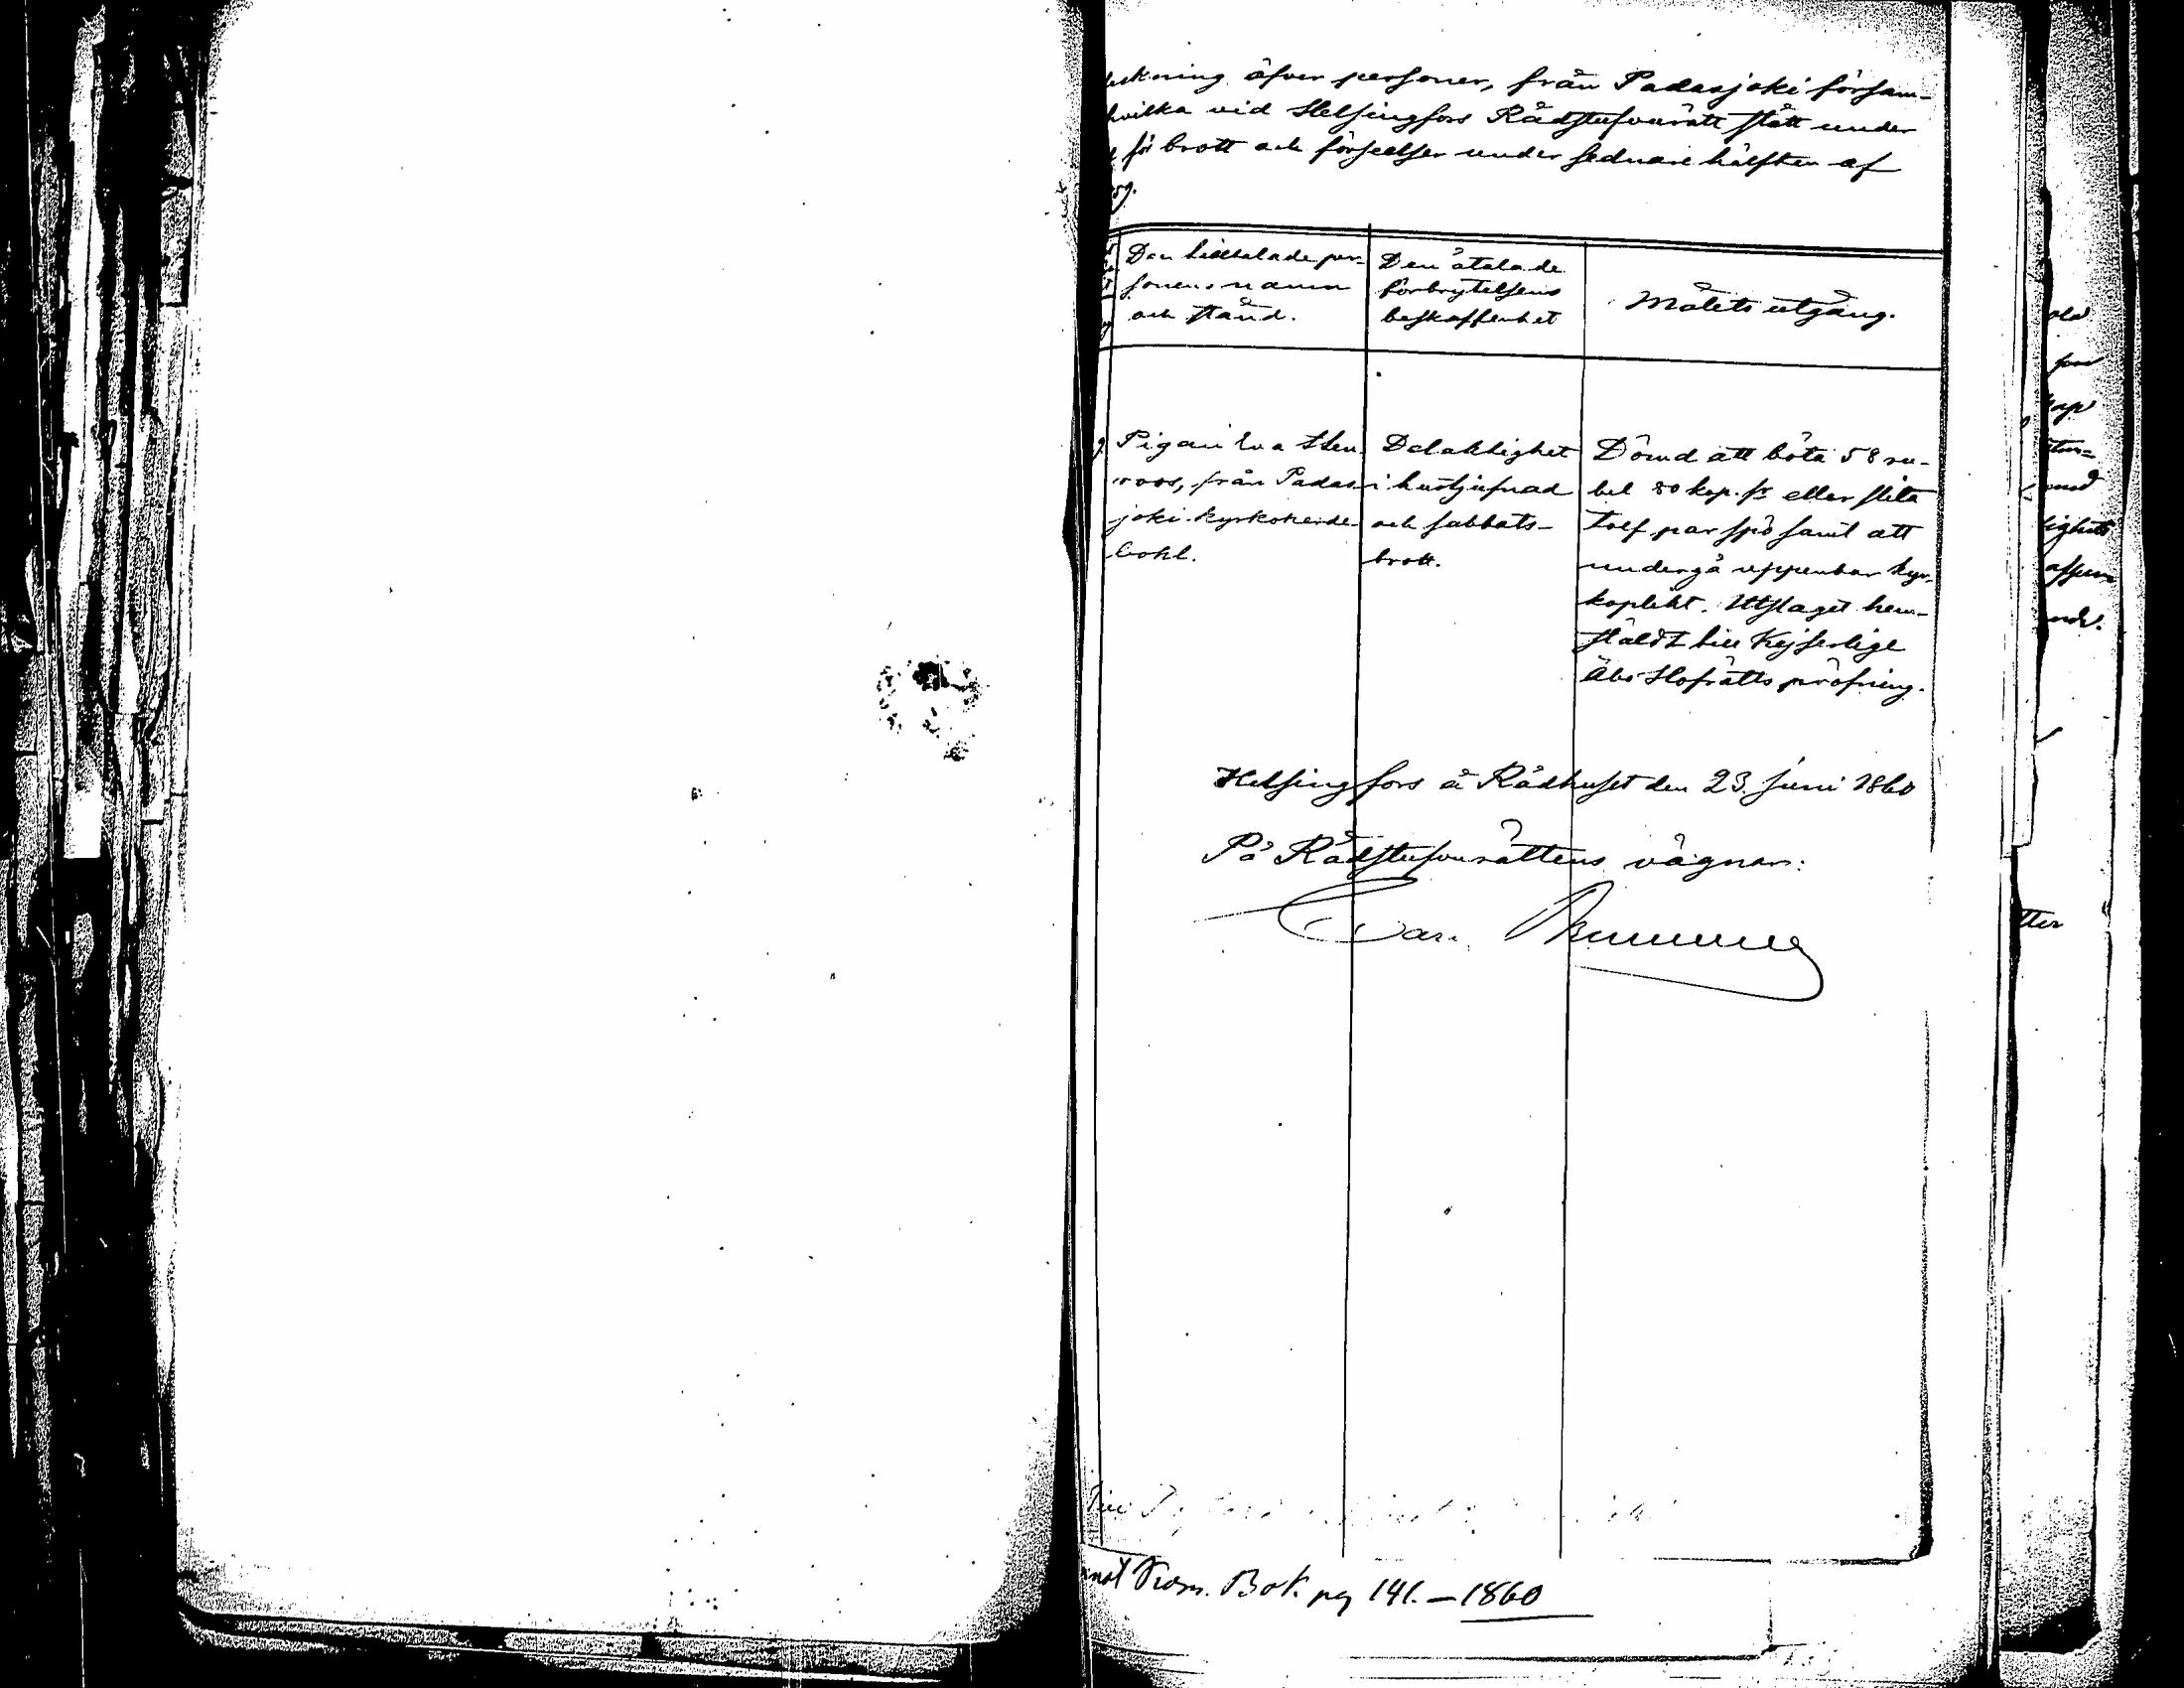 teckning öfver personer, från Padasjoki försam-
hvilka vid Helsingfors Rådstufvurätt stått under
för brott och förseelser under sednare hälften af
59.
Den tilltalade per-
sonens namn
och stånd.
Den åtalade
förbrytelsens
beskaffenhet
Målets utgång.
9. Pigan Eva Sten-
roos, från Padas-
joki kyrkoherde-
bohl.
Delaktighet
i hustjufnad
och sabbats-
brott.
Dömd att böta 58 ru-
bel 80 kop. sr eller slita
tolf par spö samt att
undergå uppenbar kyr-
koplikt. Utslaget hem-
stäldt till Kejserlige
Åbo Hofrätts pröfning.
Helsingfors å Rådhuset den 23 Juni 1860
På Rådstufvurättens vägnar:
Till
Bok pag 141. — 1860
old
tter